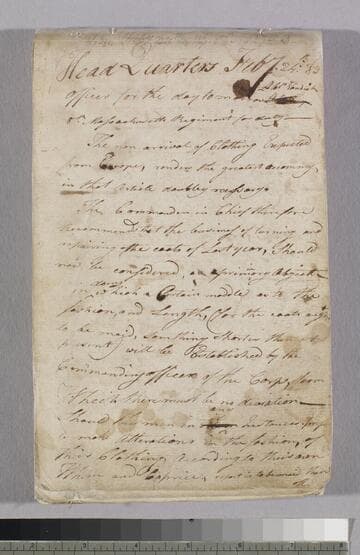 Head Quarters Feby 24th 83
Officer for the day tomorrow
8th Massachusetts Regiment for duty
The non arrival of Clothing Expected
from Europe, renders the greatest œconomy
in that Article doubley necessary
The Commander in Chief therefore
Recommends that the business of turning and
repairing the coats of Last year, Should
now be considered, as a primary Object
in which a Certain moddle as to the
fashion, and Length, (for the coats
to be maid, something Shorter than at
present) will be Established by the
Commanding officer of the Corps, from
Which there must be no deviation
Should the men in
to make alterations in the fashion, of
their Clothing, according to their own
Whim and Caprice,